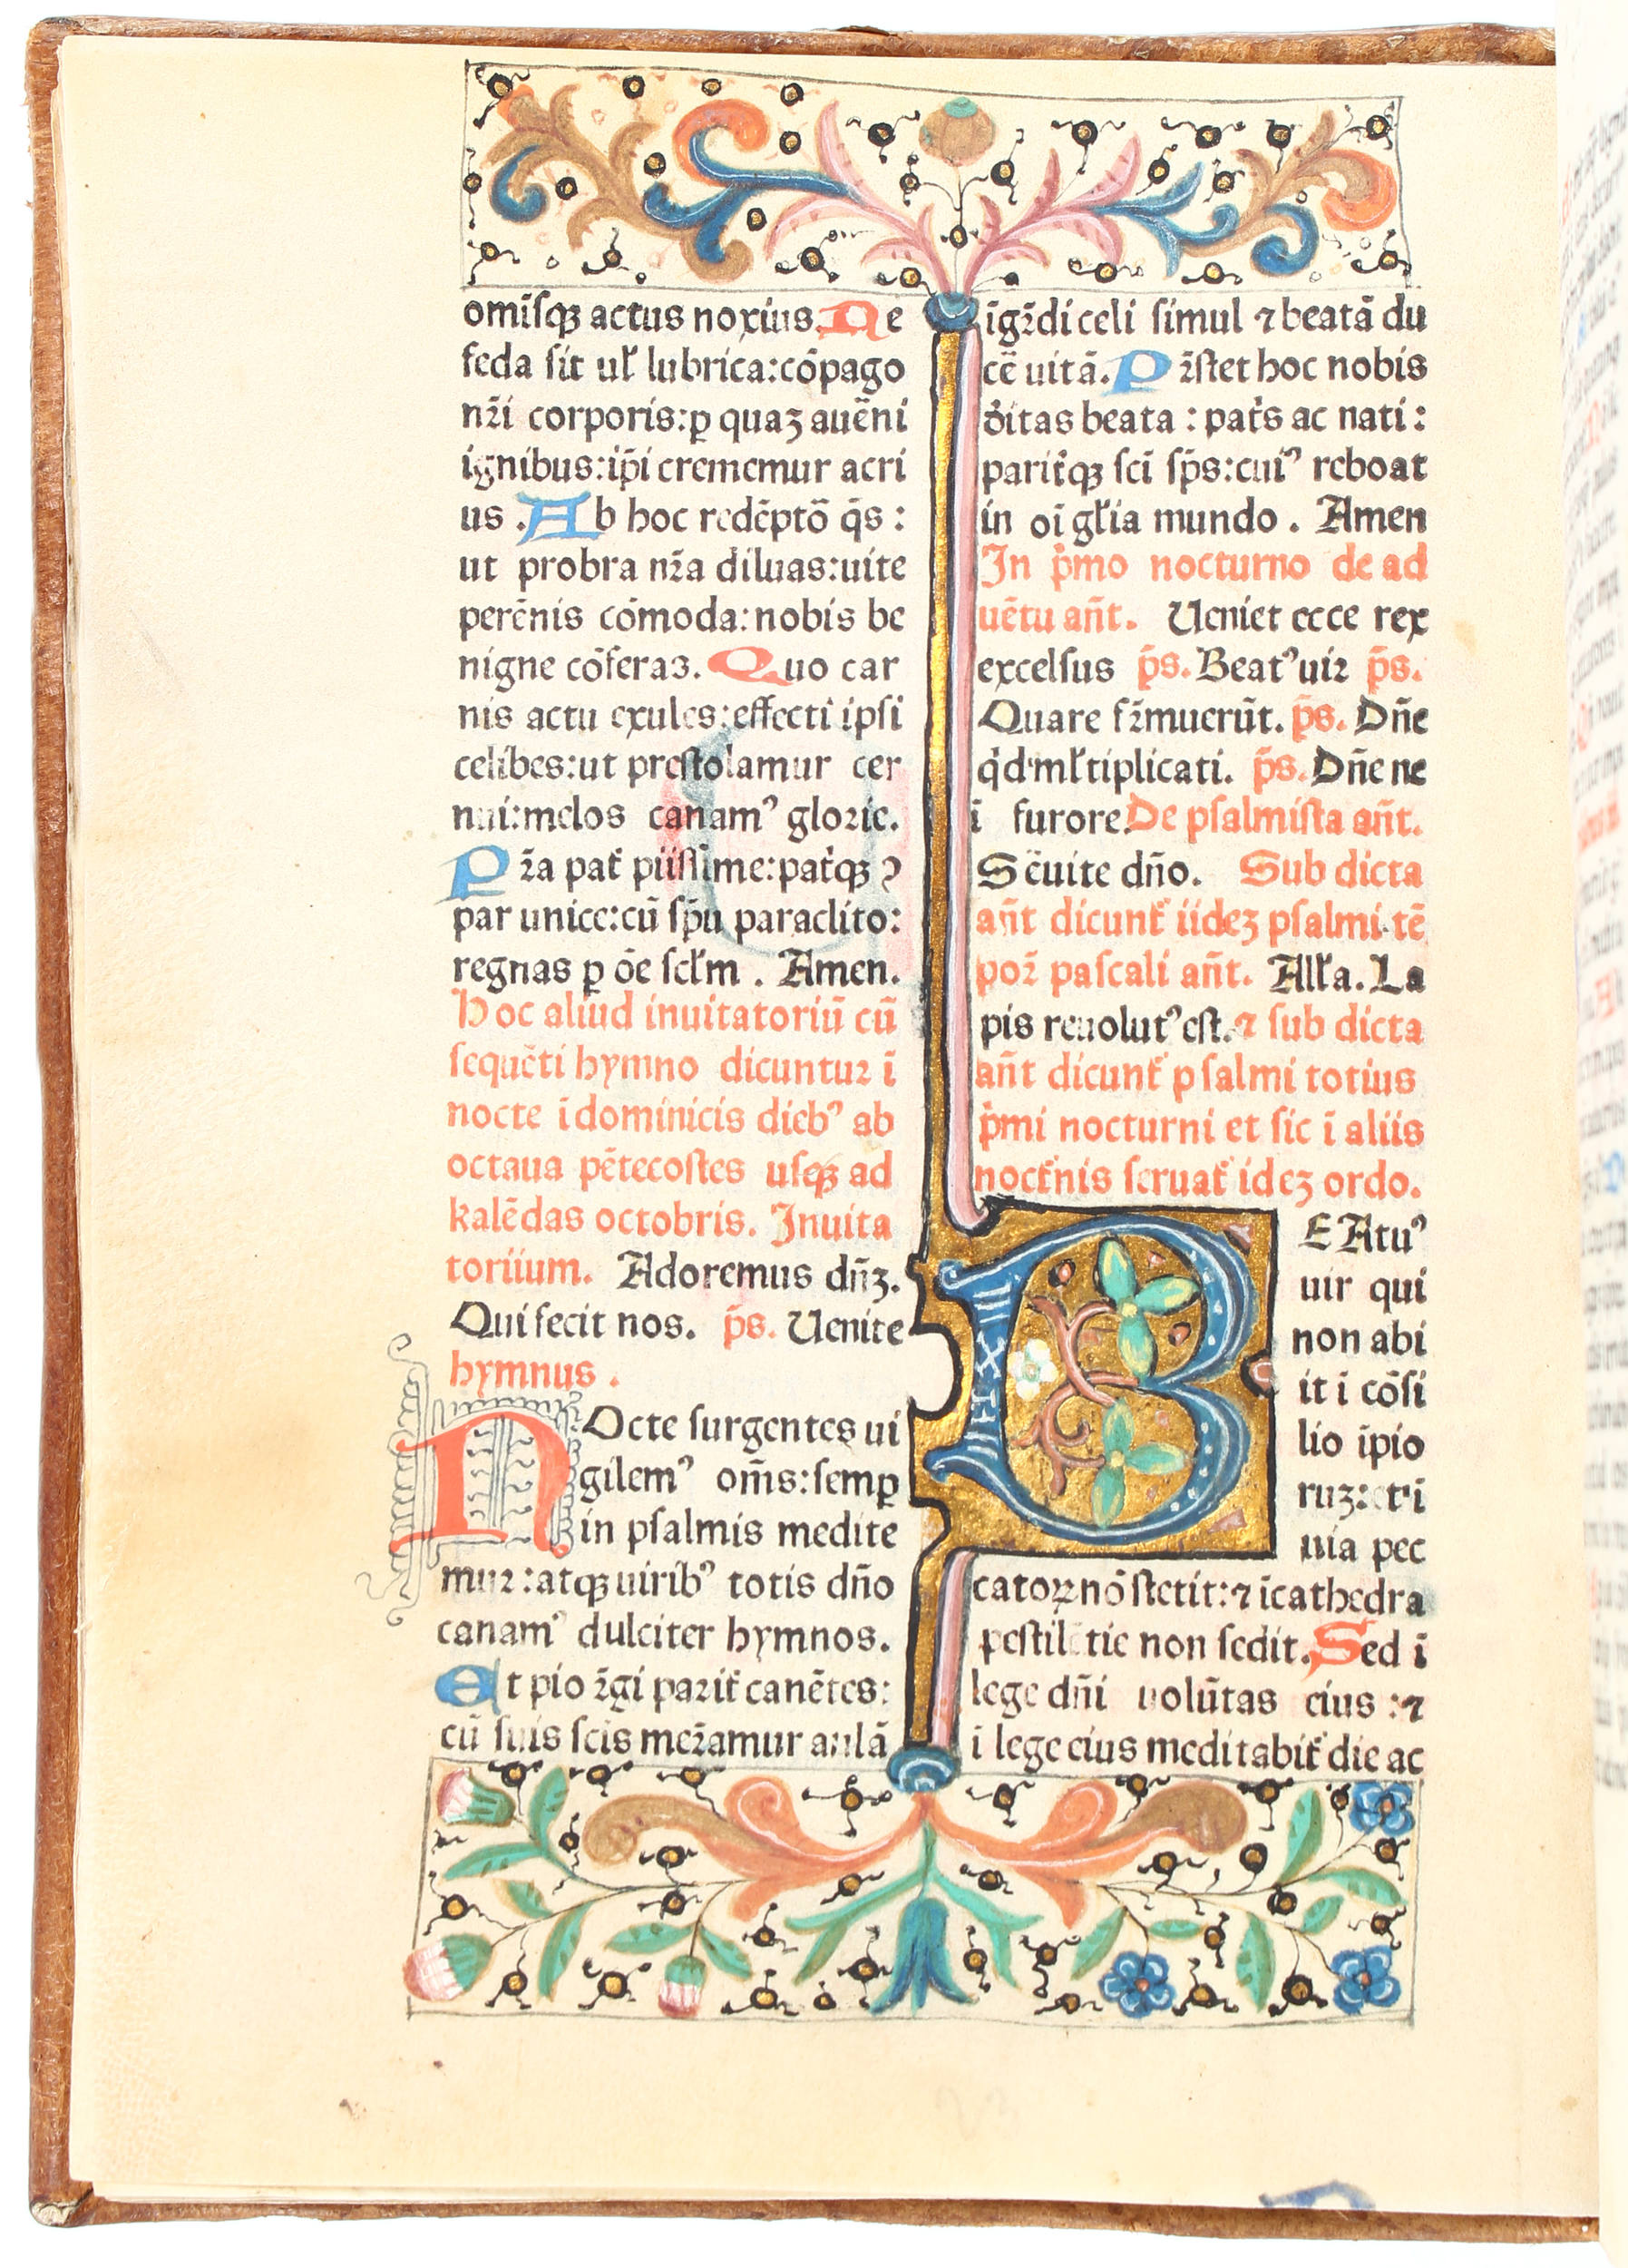 omīſqꝫ actus noxius. Ne
feda ſit ul̄ lubrica:cōpago
nr̄i corporis:ꝑ quaꝫ auēni
ignibus:ip̄i crememur acri
us . Ab hoc redēptō q̄s :
ut probra nr̄a diluas:uite
perēnis cōmoda:nobis be
nigne cōferaꝫ. Quo car
nis actu exules:effecti ipſi
celibes:ut preſtolamur cer
nui:melos canamꝰ glorie.
Pr̄a pat̄ piiſſime:patrqꝫ ꝯ
par unice:cū ſp̄u paraclito:
regnas ꝑ ōe ſcl̄m . Amen.
Hoc aliud inuitatoriū cū
ſequēti hymno dicuntur ī
nocte ī dominicis diebꝰ ab
octaua pētecoſtes uſqꝫ ad
kalēdas octobris. Inuita
toriium. Adoremus dn̄ꝫ.
Qui fecit nos. p̄s. Uenite
hymnus .
NOcte ſurgentes ui
gilemꝰ om̄s:ſemꝑ
in pſalmis medite
mur:atqꝫ uiribꝰ totis dn̄o
canamꝰ dulciter hymnos.
Et pio r̄gi parit̄ canētes:
cū ſuis ſcīs mer̄amur aulā
īgr̄di celi ſimul ⁊ beatā du
cē uitā. Pr̄ſtet hoc nobis
d̄itas beata : pat̄s ac nati :
parit̄qꝫ ſcī ſp̄s:cuiꝰ reboat
in oī gl̄ia mundo . Amen
In p̄mo nocturno de ad
uētu an̄t. Ueniet ecce rex
excelſus p̄s. Beatꝰ uir p̄s.
Quare fr̄muerūt. p̄s. Dn̄e
q̄d ml̄tiplicati. p̄s. Dn̄e ne
ī furore. De pſalmiſta an̄t.
S̄euite dn̄o. Sub dicta
an̄t dicunt̄ iideꝫ pſalmi. tē
por̄ paſcali an̄t. All̄a. La
pis reuolutꝰ eſt. ⁊ ſub dicta
an̄t dicunt̄ pſalmi totius
p̄mi nocturni et ſic ī aliis
noct̄nis ſeruat̄ ideꝫ ordo.
BEAtuꝰ
uir qui
non abi
it ī cōſi
lio īpio
ruꝫ: et ī
uia pec
catoꝝ nō ſtetit: ⁊ ī cathedra
peſtilētie non ſedit. Sed ī
lege dn̄i uolūtas eius : ⁊
ī lege eius meditabit̄ die ac